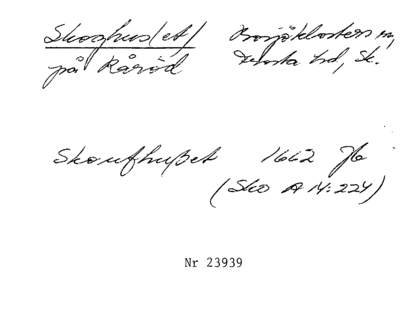 Skoghus(et) Bosjöklosters sn,
på Råröd Frosta hd, Sk.
Skoufhußet 1662 Jb
(Sko A 14:224)
Nr 23939